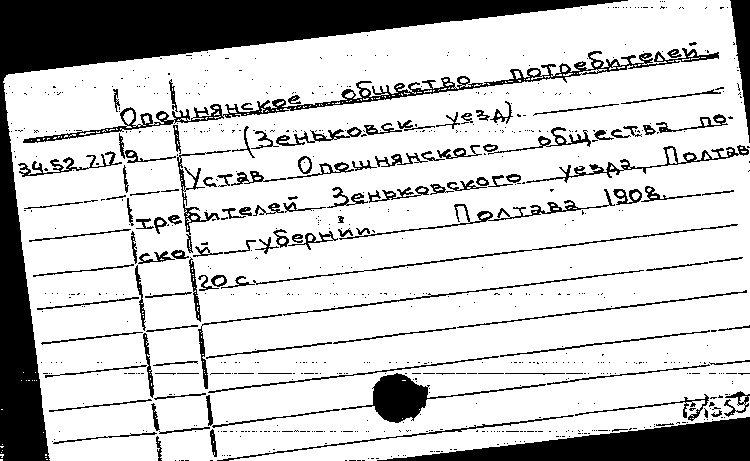 Опошнянское общество потребителей.
(Зеньковск. уезд).
34.52.7.17 9.
Устав Опошнянского общества по-
требителей Зеньковского уезда, Полтав
ской губернии. Полтава, 1908.
20 с.